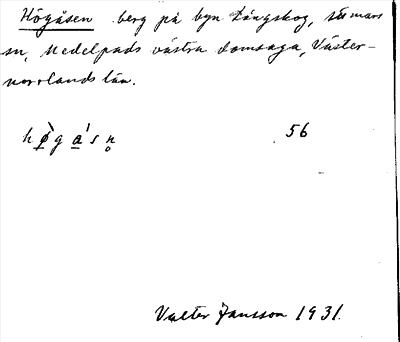 Högåsen berg på byn Långskog, Stömars
sn, Medelpads västra domsaga, Väster-
norrlands län.
hø̀ga̱ˈsn̥ 56
Valter Jansson 1931.